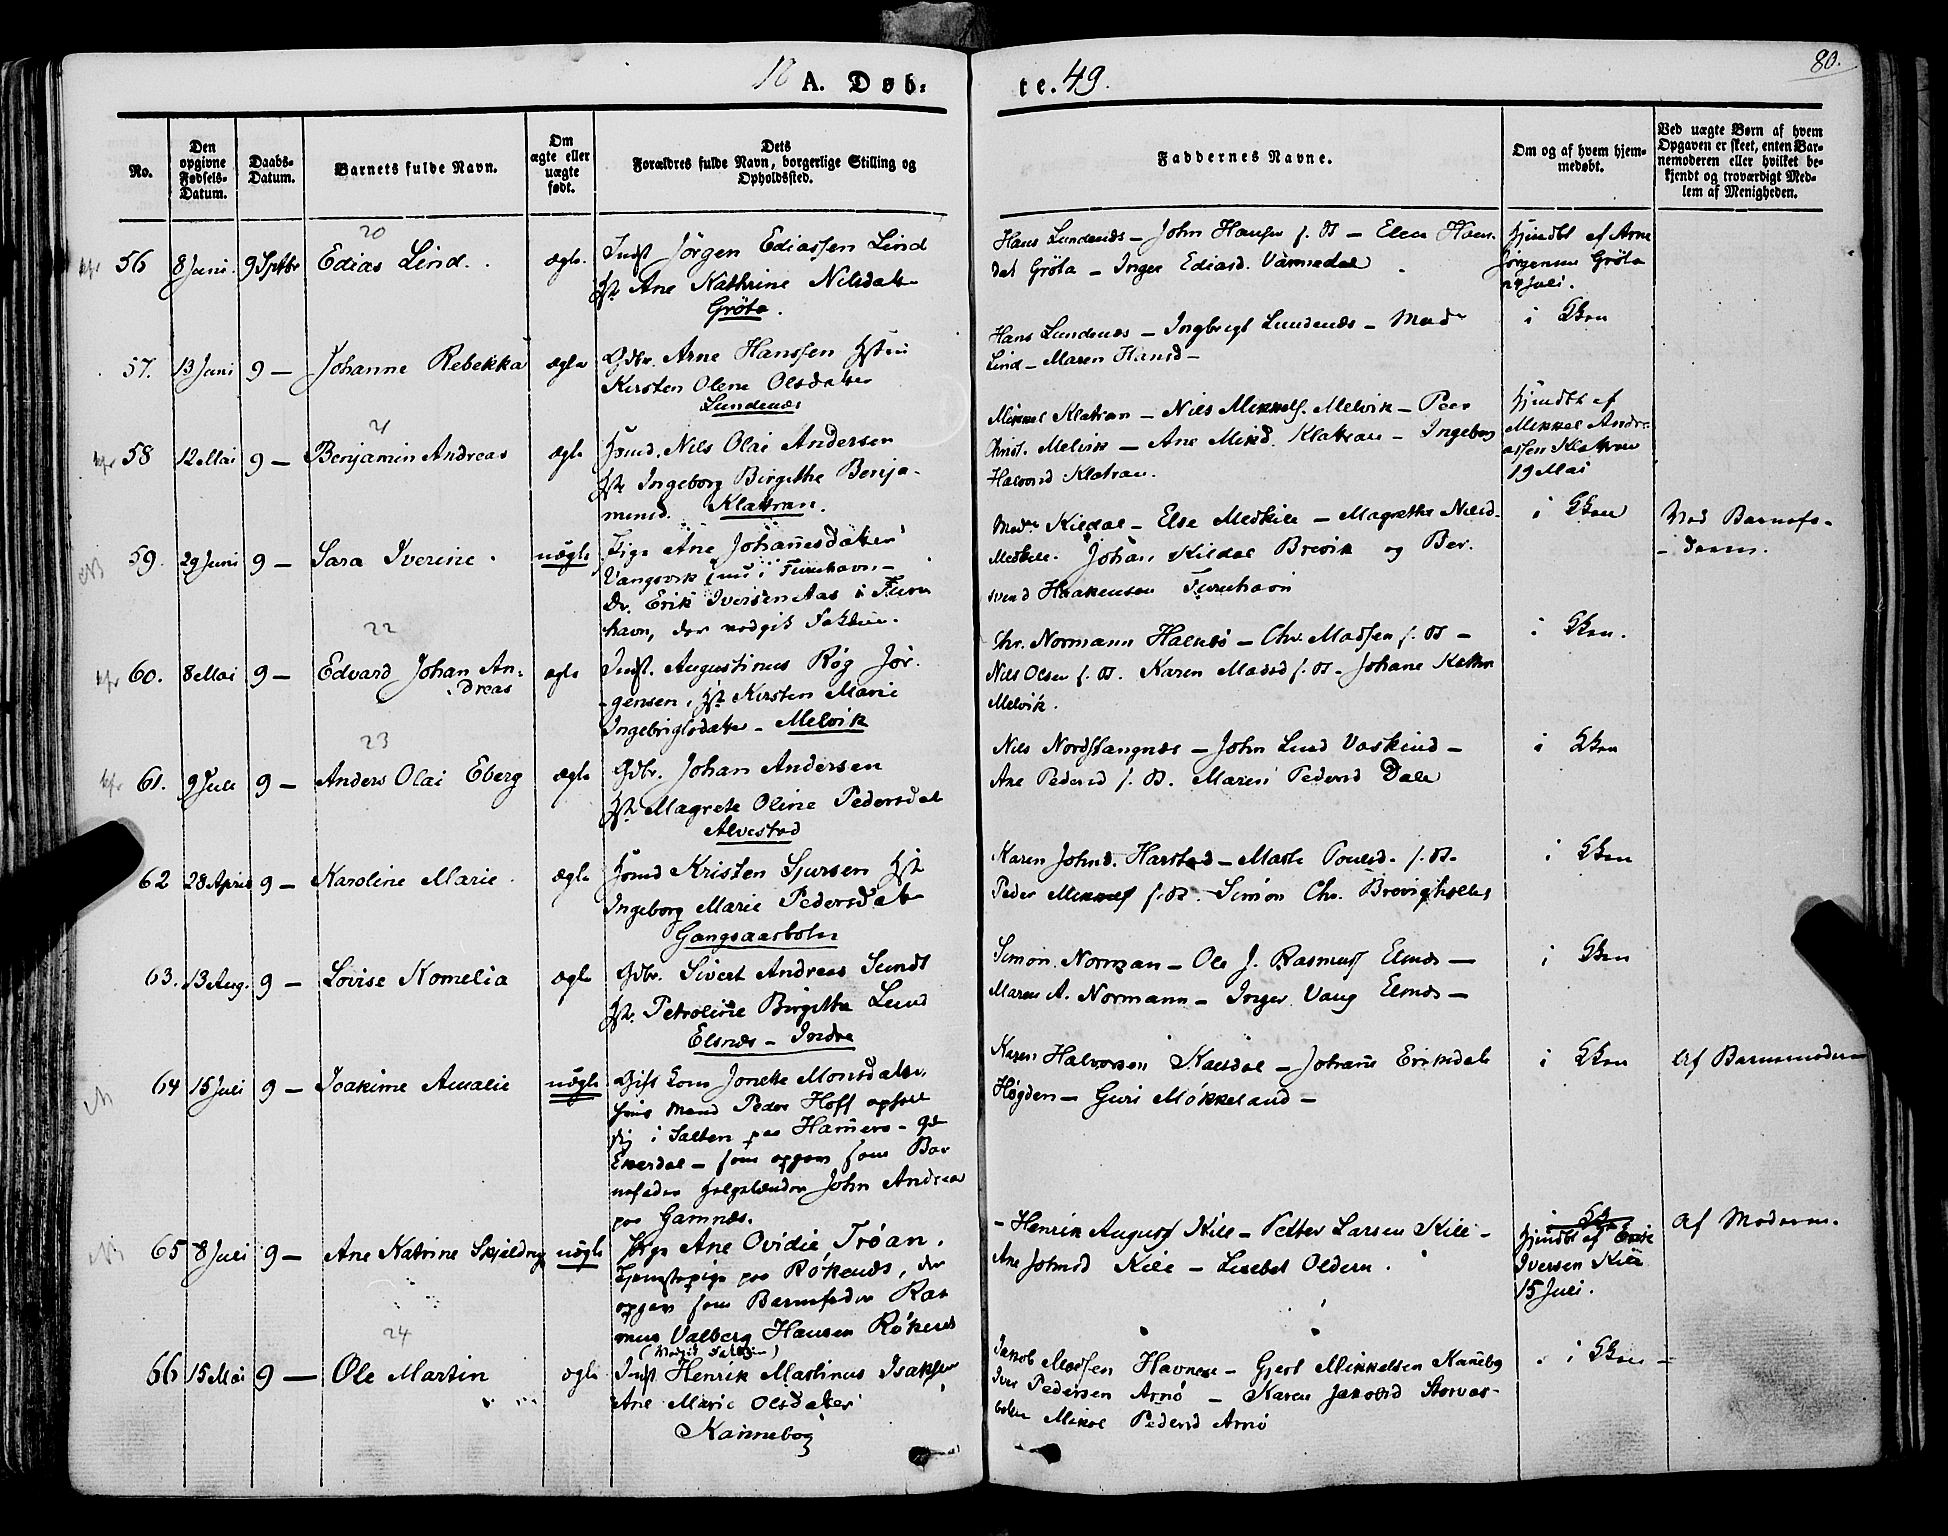 18 A. Døb- te. 49. 80.
No.
Den opgivne Fødsels-Datum.
Daabs-Datum.
Barnets fulde Navn.
Om ægte eller uægte født.
Dets Forældres fulde Navn, borgerlige Stilling og Opholdssted.
Faddernes Navne.
Om og af hvem hjemmedøbt.
Ved uægte Børn af hvem Opgaven er skeet, enten Barnemoderen eller hvilket bekjendt og troværdigt Medlem af Menigheden.
20
56 8 Juni. 9 Septbr Edias Lind. ægte.
Indst Jörgen Ediassen Lind
Hst Ane Kathrine Nilsdatr
Gröta.
Hans Lundenæs – John Hansen f. St – Elen Hans-
dat Gröta – Inger Ediasd. Värnedal
hjmdbt af Arne
Jørgensen Gröta
29 Juli.
57. 13 Juni 9 – Johanne Rebekka ægte
Gdbr. Arne Hanssen Hstru
Kirsten Olene Olsdatter
Lundenæs
Hans Lundenæs – Ingbrigt Lundenæs – Mad
Lind – Maren Hansd –
i Kken
21
58 12 Mai 9 – Benjamin Andreas ægte
Hsmd. Nils Olai Andersen
Hst Ingeborg Birgithe Benja-
minsd. Klatran.
Mikkel Klatran – Nils Mikkels. Melvik – Peer
Christ. Melvik – Ane Mikd. Klatran – Ingeborg
Halvorsd Klatran.
hjmdbt af
Mikkel Andre-
assen Klatran
19 Mai
59. 29 Juni 9 – Sara Iverine. uægte
Pige Ane Johannesdatter
Vangsvik (nu i Finnhavn –
Dr. Erik Iversen Aas i Finn
havn, der modgik Faktum.
Mad Kildal – Else Medkile – Magrethe Nilsd.
Medkile. Johan Kildal Brevik og Ber-
svend Haakensen Finnhavn
i Kken
Ved Barnefa-
deren.
22
60. 8 Mai 9 – Edvard Johan An-
dreas ægte
Indst. Augustinus Røg Jör-
gensen, Hst Kirsten Marie
Ingebrigtsdatter – Melvik
Chr. Normann Halnæs – Chr. Madsen f. St –
Nils Olsen f. St. Karen Madsd f. St – Johane Kathr
Melvik.
i Kken.
23
61. 9 Juli 9 – Anders Olai Eberg ægte
Gdbr. Johan Andersen
Hst Magrete Oline Pedersdat
Alvestad
Nils Nordstangnæs – John Lind Vaskind –
Ane Pedersd f. St. Maren Pedersd Dale
i Kken
62 28 April 9 – Karoline Marie. ægte
Hsmd Kristen Sjursen Hst
Ingeborg Marie Pedersdatr
Gangsaasbotn
Karen Johnd. Harstad – Marte Poulsd. f. St.
Peder Mikkels f. St. Simon Chr. Brovigholles
i Kken
63. 13 Aug. 9 – Lovise Kornelia ægte
Gdbr. Sivert Andreas Sundt
Hst. Petroline Birgitta Lund
Elsnæs – Indre
Simon Norman – Ole J. Rasmus Elsnæs –
Maren A. Normann – Inger Vang Elsnæs –
i Kken
64 15 Juli 9 – Joakime Amalie uægte
Gift Kone Jonette Monsdatter,
hvis Mand Peder Hoff opholdt
sig i Salten paa Hamerø – Gd
Enesdal – som opgav som Bar
nefader Helgelænder John Andreas
paa Gamnæs.
Karen Halvorsen Kalsdal – Johane Eriksdatr
Høgden – Guri Møkkeland –
i Kken
Af Barnemoderen
65 8 Juli 9 – Ane Katrine Skjeldny uægte
Pige Ane Ovidie Trøan,
Tjenestepige paa Røkenæs, der
opgav som Barnefader Ras
mus Valberg Hansen Røkenes
(Modgik Faktum)
– Henrik August Kile – Petter Larsen Kile –
Ane Johnsd Kile – Lisebet Olderen.
hjmdbt af
Iversen Kile
15 Juli.
Af Moderen.
24
66 15 Mai 9 – Ole Martin ægte
Indst Henrik Martinus Isaksen
Ane Marie Olsdatter
Kannebog
Jakob Madsen Havnen – Gjert Mikkelsen Kannebog
Iver Pedersen Arnø – Karen Jakobsd Storvas-
botn Mikol Pedersd Arnø
i Kken –